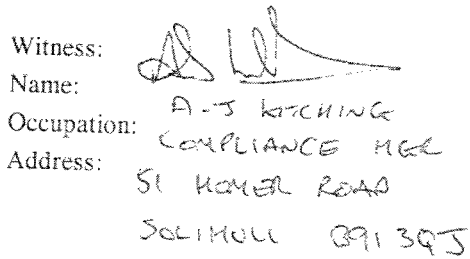 Witness:
Name: A-J KITCHING
Occupation: COMPLIANCE MGR
Address: 51 HOMER ROAD
SOLIHULL B91 3QJ